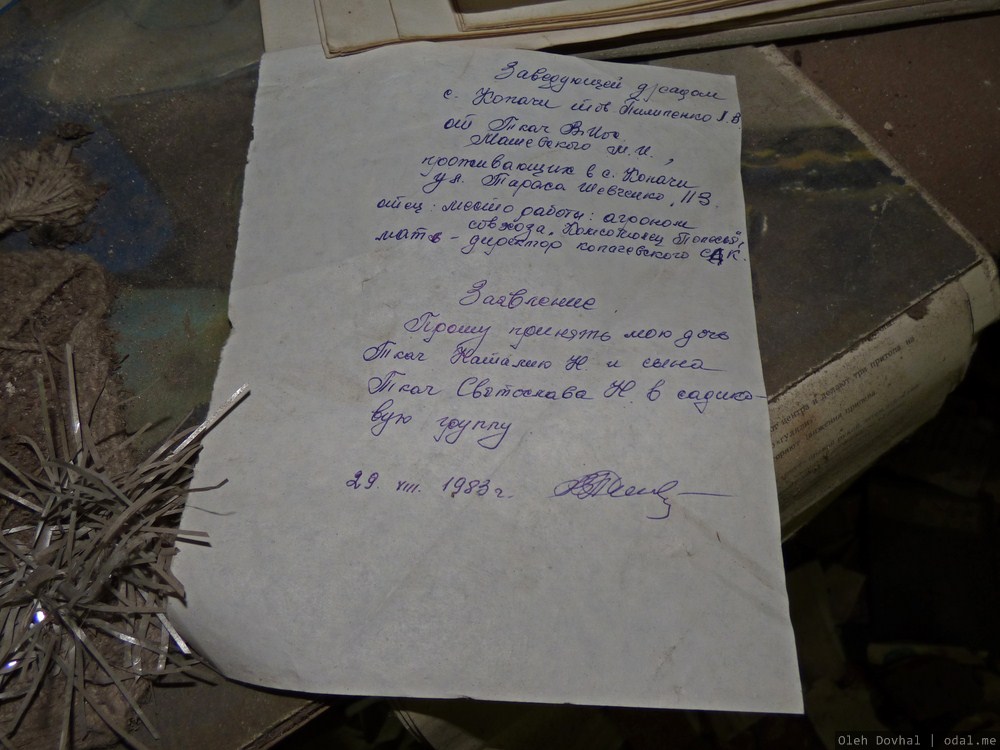 Заведующей д/садом
с. Копачи тов Пилипенко
от Ткач В.
Машевского М.И.,
проживающих в с. Копачи
ул. Тараса Шевченко, 113.
отец: место работы: агроном
совхоза „Комсомолец Полесья",
мать – директор копачевского СДК.
Заявление
Прошу принять мою дочь
Ткач Наталию Н. и сына
Ткач Святослава Н. в садико-
вую группу.
29. VIII. 1983 г.
центра и делают три притопа на
Oleh Dovhal | odal.me